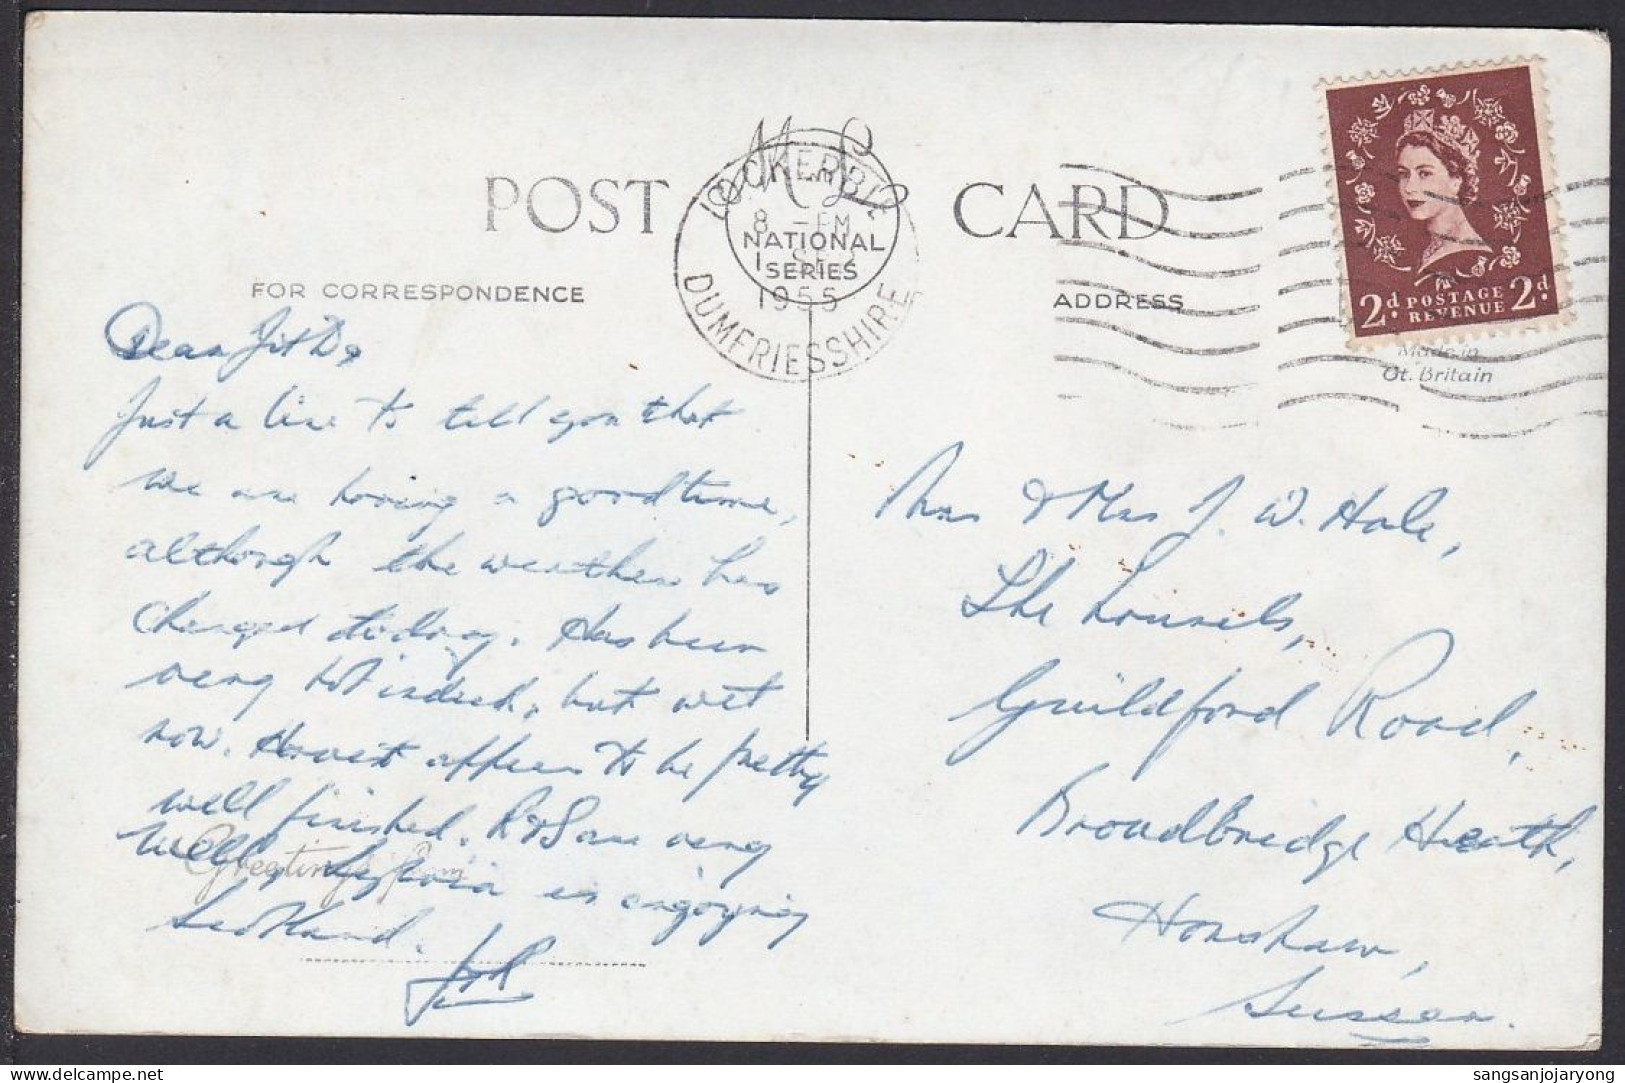 POST CARD
M & L
NATIONAL
SERIES
LOCKERBIE
8 - PM
1 SEP
1955
DUMFRIESSHIRE
FOR CORRESPONDENCE
ADDRESS
2d. POSTAGE 2d.
REVENUE
Made in
Gt. Britain
Dear
Just a line to tell you that
we are having a good time,
although the weather has
changed today. Has been
very hot indeed, but wet
now. Harvest appears to be pretty
well finished. R & S are very
well & Sylvia is enjoying
Scotland.
Greetings from
Mr & Mrs J. W. Hale,
The Laurels,
Guildford Road,
Broadbridge Heath,
Horsham,
Sussex.
sangsanjojaryong